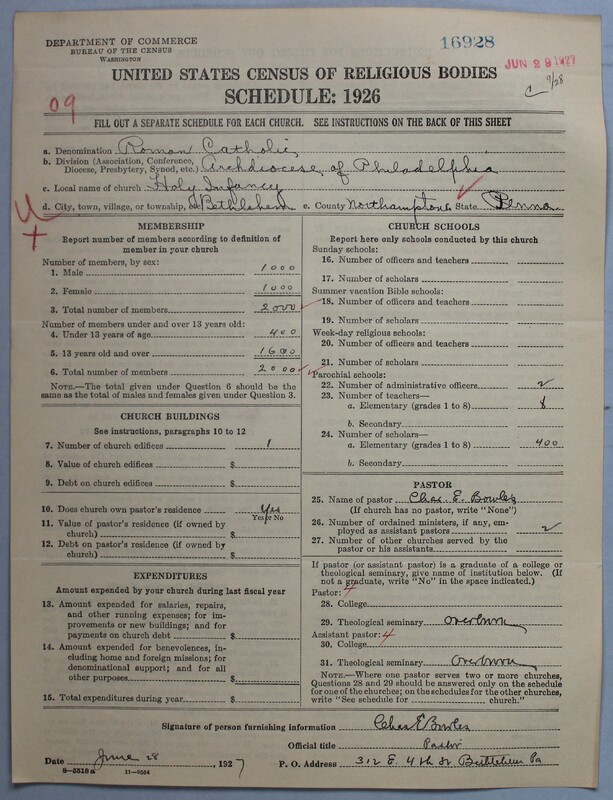 DEPARTMENT OF COMMERCE
BUREAU OF THE CENSUS
WASHINGTON
16928
JUN 29 1927
C 9/28
UNITED STATES CENSUS OF RELIGIOUS BODIES
SCHEDULE: 1926
09
FILL OUT A SEPARATE SCHEDULE FOR EACH CHURCH. SEE INSTRUCTIONS ON THE BACK OF THIS SHEET
a. Denomination Roman Catholic
b. Division (Association, Conference, Diocese, Presbytery, Synod, etc.) Archdiocese of Philadelphia
c. Local name of church Holy Infancy
d. City, town, village, or township, Bethlehem e. County Northampton State Penna
MEMBERSHIP
Report number of members according to definition of
member in your church
Number of members, by sex:
1. Male 1000
2. Female 1000
3. Total number of members 2000
Number of members under and over 13 years old:
4. Under 13 years of age 400
5. 13 years old and over 1600
6. Total number of members 2000
NOTE.—The total given under Question 6 should be the
same as the total of males and females given under Question 3.
CHURCH BUILDINGS
See instructions, paragraphs 10 to 12
7. Number of church edifices 1
8. Value of church edifices $
9. Debt on church edifices $
10. Does church own pastor's residence Yes
Yes or No
11. Value of pastor's residence (if owned by
church) $
12. Debt on pastor's residence (if owned by
church) $
EXPENDITURES
Amount expended by your church during last fiscal year
13. Amount expended for salaries, repairs,
and other running expenses; for im-
provements or new buildings; and for
payments on church debt $
14. Amount expended for benevolences, in-
cluding home and foreign missions; for
denominational support; and for all
other purposes $
15. Total expenditures during year $
CHURCH SCHOOLS
Report here only schools conducted by this church
Sunday schools:
16. Number of officers and teachers
17. Number of scholars
Summer vacation Bible schools:
18. Number of officers and teachers
19. Number of scholars
Week-day religious schools:
20. Number of officers and teachers
21. Number of scholars
Parochial schools:
22. Number of administrative officers 2
23. Number of teachers—
a. Elementary (grades 1 to 8) 8
b. Secondary
24. Number of scholars—
a. Elementary (grades 1 to 8) 400
b. Secondary
PASTOR
25. Name of pastor Chas. E. Bowles
(If church has no pastor, write "None")
26. Number of ordained ministers, if any, em-
ployed as assistant pastors 2
27. Number of other churches served by the
pastor or his assistants
If pastor (or assistant pastor) is a graduate of a college or
theological seminary, give name of institution below. (If
not a graduate, write "No" in the space indicated.)
Pastor: 4
28. College
29. Theological seminary Overbrook
Assistant pastor: 4
30. College
31. Theological seminary Overbrook
NOTE.—Where one pastor serves two or more churches,
Questions 28 and 29 should be answered only on the schedule
for one of the churches; on the schedules for the other churches,
write "See schedule for church."
Signature of person furnishing information Chas E Bowles
Official title Pastor
Date June 28, 1927 P. O. Address 312 E 4th St Bethlehem Pa
8—5518a 11—9554